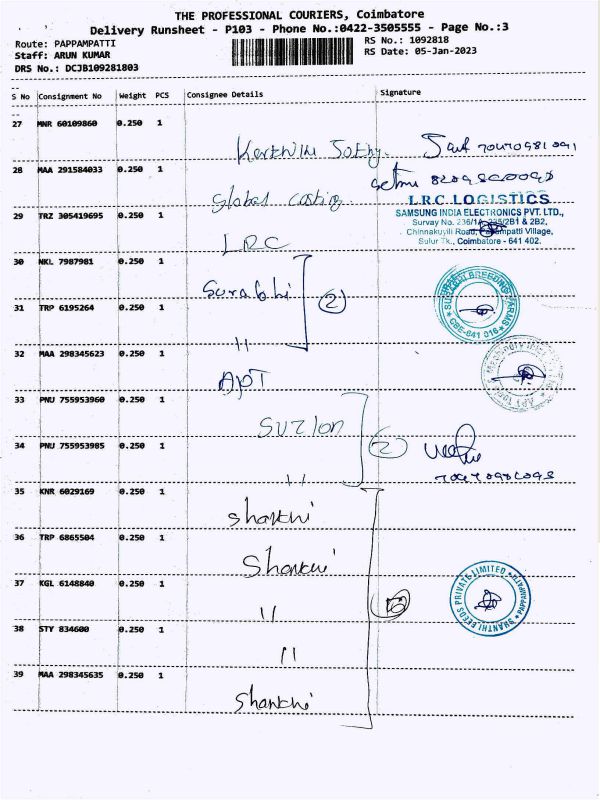 THE PROFESSIONAL COURIERS, Coimbatore
Delivery Runsheet - P103 - Phone No.:0422-3505555 - Page No.:3
Route: PAPPAMPATTI
RS No.: 1092818
Staff: ARUN KUMAR
RS Date: 05-Jan-2023
DRS No.: DCJB109281803
S No Consignment No Weight PCS Consignee Details Signature
27 MNR 60109860 0.250 1
28 MAA 291584033 0.250 1
Global
L.R.C. LOGISTICS
29 TRZ 305419695 0.250 1
SAMSUNG INDIA ELECTRONICS PVT. LTD.,
Survay No. 236/1A, 2B2,
Chinnakuyili Road, Pappampatti Village,
Sulur Tk., Coimbatore - 641 402.
LRC
30 NKL 7987981 0.250 1
Surabhi (2)
SURABHI BREEDING FARMS
CBE-641 016
31 TRP 6195264 0.250 1
"
32 MAA 298345623 0.250 1
APT
33 PNU 755953960 0.250 1
Suzlon
34 PNU 755953985 0.250 1
(2)
"
35 KNR 6029169 0.250 1
Shanthi
36 TRP 6865504 0.250 1
Shanthi
37 KGL 6148840 0.250 1
SHANTHI FEEDS PRIVATE LIMITED PAPPAMPATTI
"
38 STY 834600 0.250 1
"
39 MAA 298345635 0.250 1
Shanthi